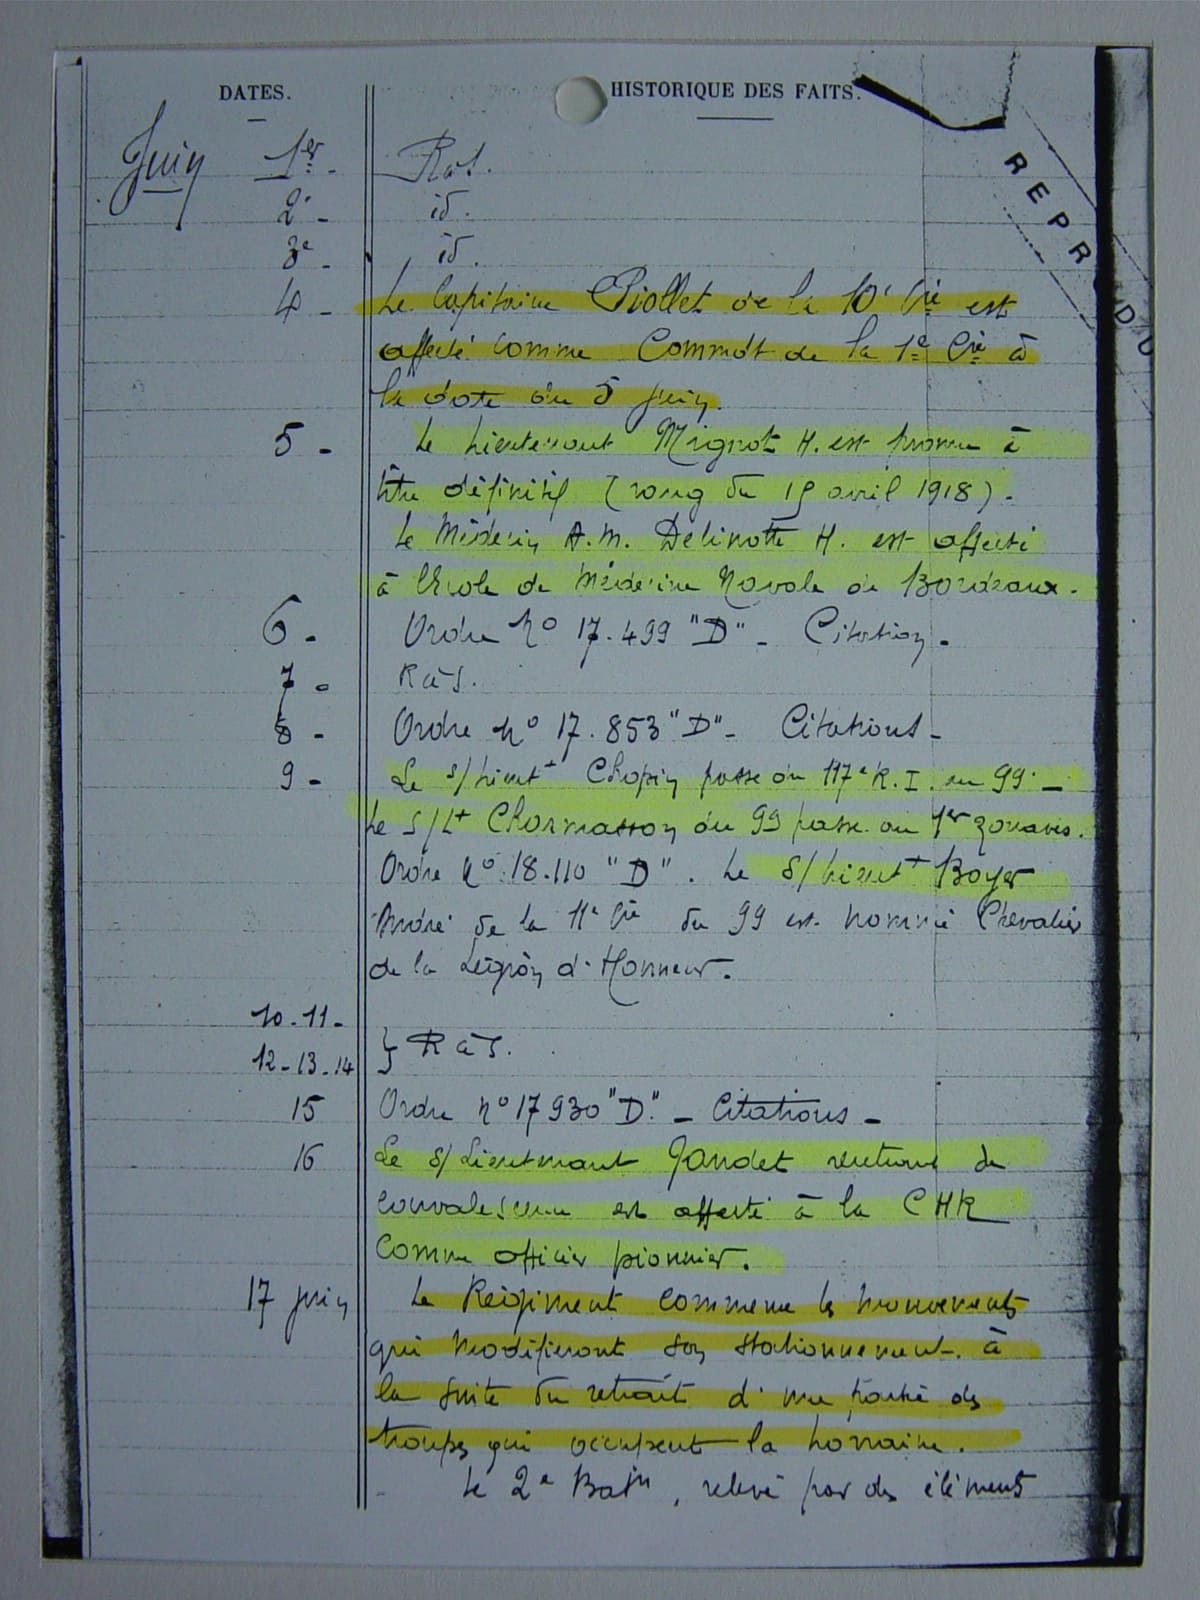 DATES. HISTORIQUE DES FAITS.
REPRODU
Juin 1er - Ras.
2e - id.
3e - id.
4 - Le Capitaine Piollet de la 10e Cie est
affecté comme Commdt de la 1e Cie à
la date du 5 juin.
5 - Le Lieutenant Mignot H. est promu à
titre définitif (rang du 15 avril 1918).
Le Médecin A.M. Delinotte H. est affecté
à l'Ecole de Médecine Navale de Bordeaux.
6 - Ordre No 17.499 "D" - Citation -
7 - RàS.
8 - Ordre No 17.853 "D" - Citations -
9 - Le s/Lieut Chopin passe du 117e R.I. au 99e -
Le S/Lt Charmasson du 99 passe au 1er zouaves.
Ordre No 18.110 "D". Le S/Lieut Boyer
André de la 11e Cie du 99 est nommé Chevalier
de la Légion d'Honneur.
10-11-
12-13-14 } RàS.
15 Ordre No 17930 "D." - Citations -
16 Le S/Lieutenant Gaudet rentrant de
convalescence est affecté à la CHR
comme officier pionnier.
17 juin Le Régiment commence les mouvements
qui modifieront son stationnement à
la suite du retrait d'une partie des
troupes qui occupent la Lorraine.
Le 2e Batn, relevé par des éléments